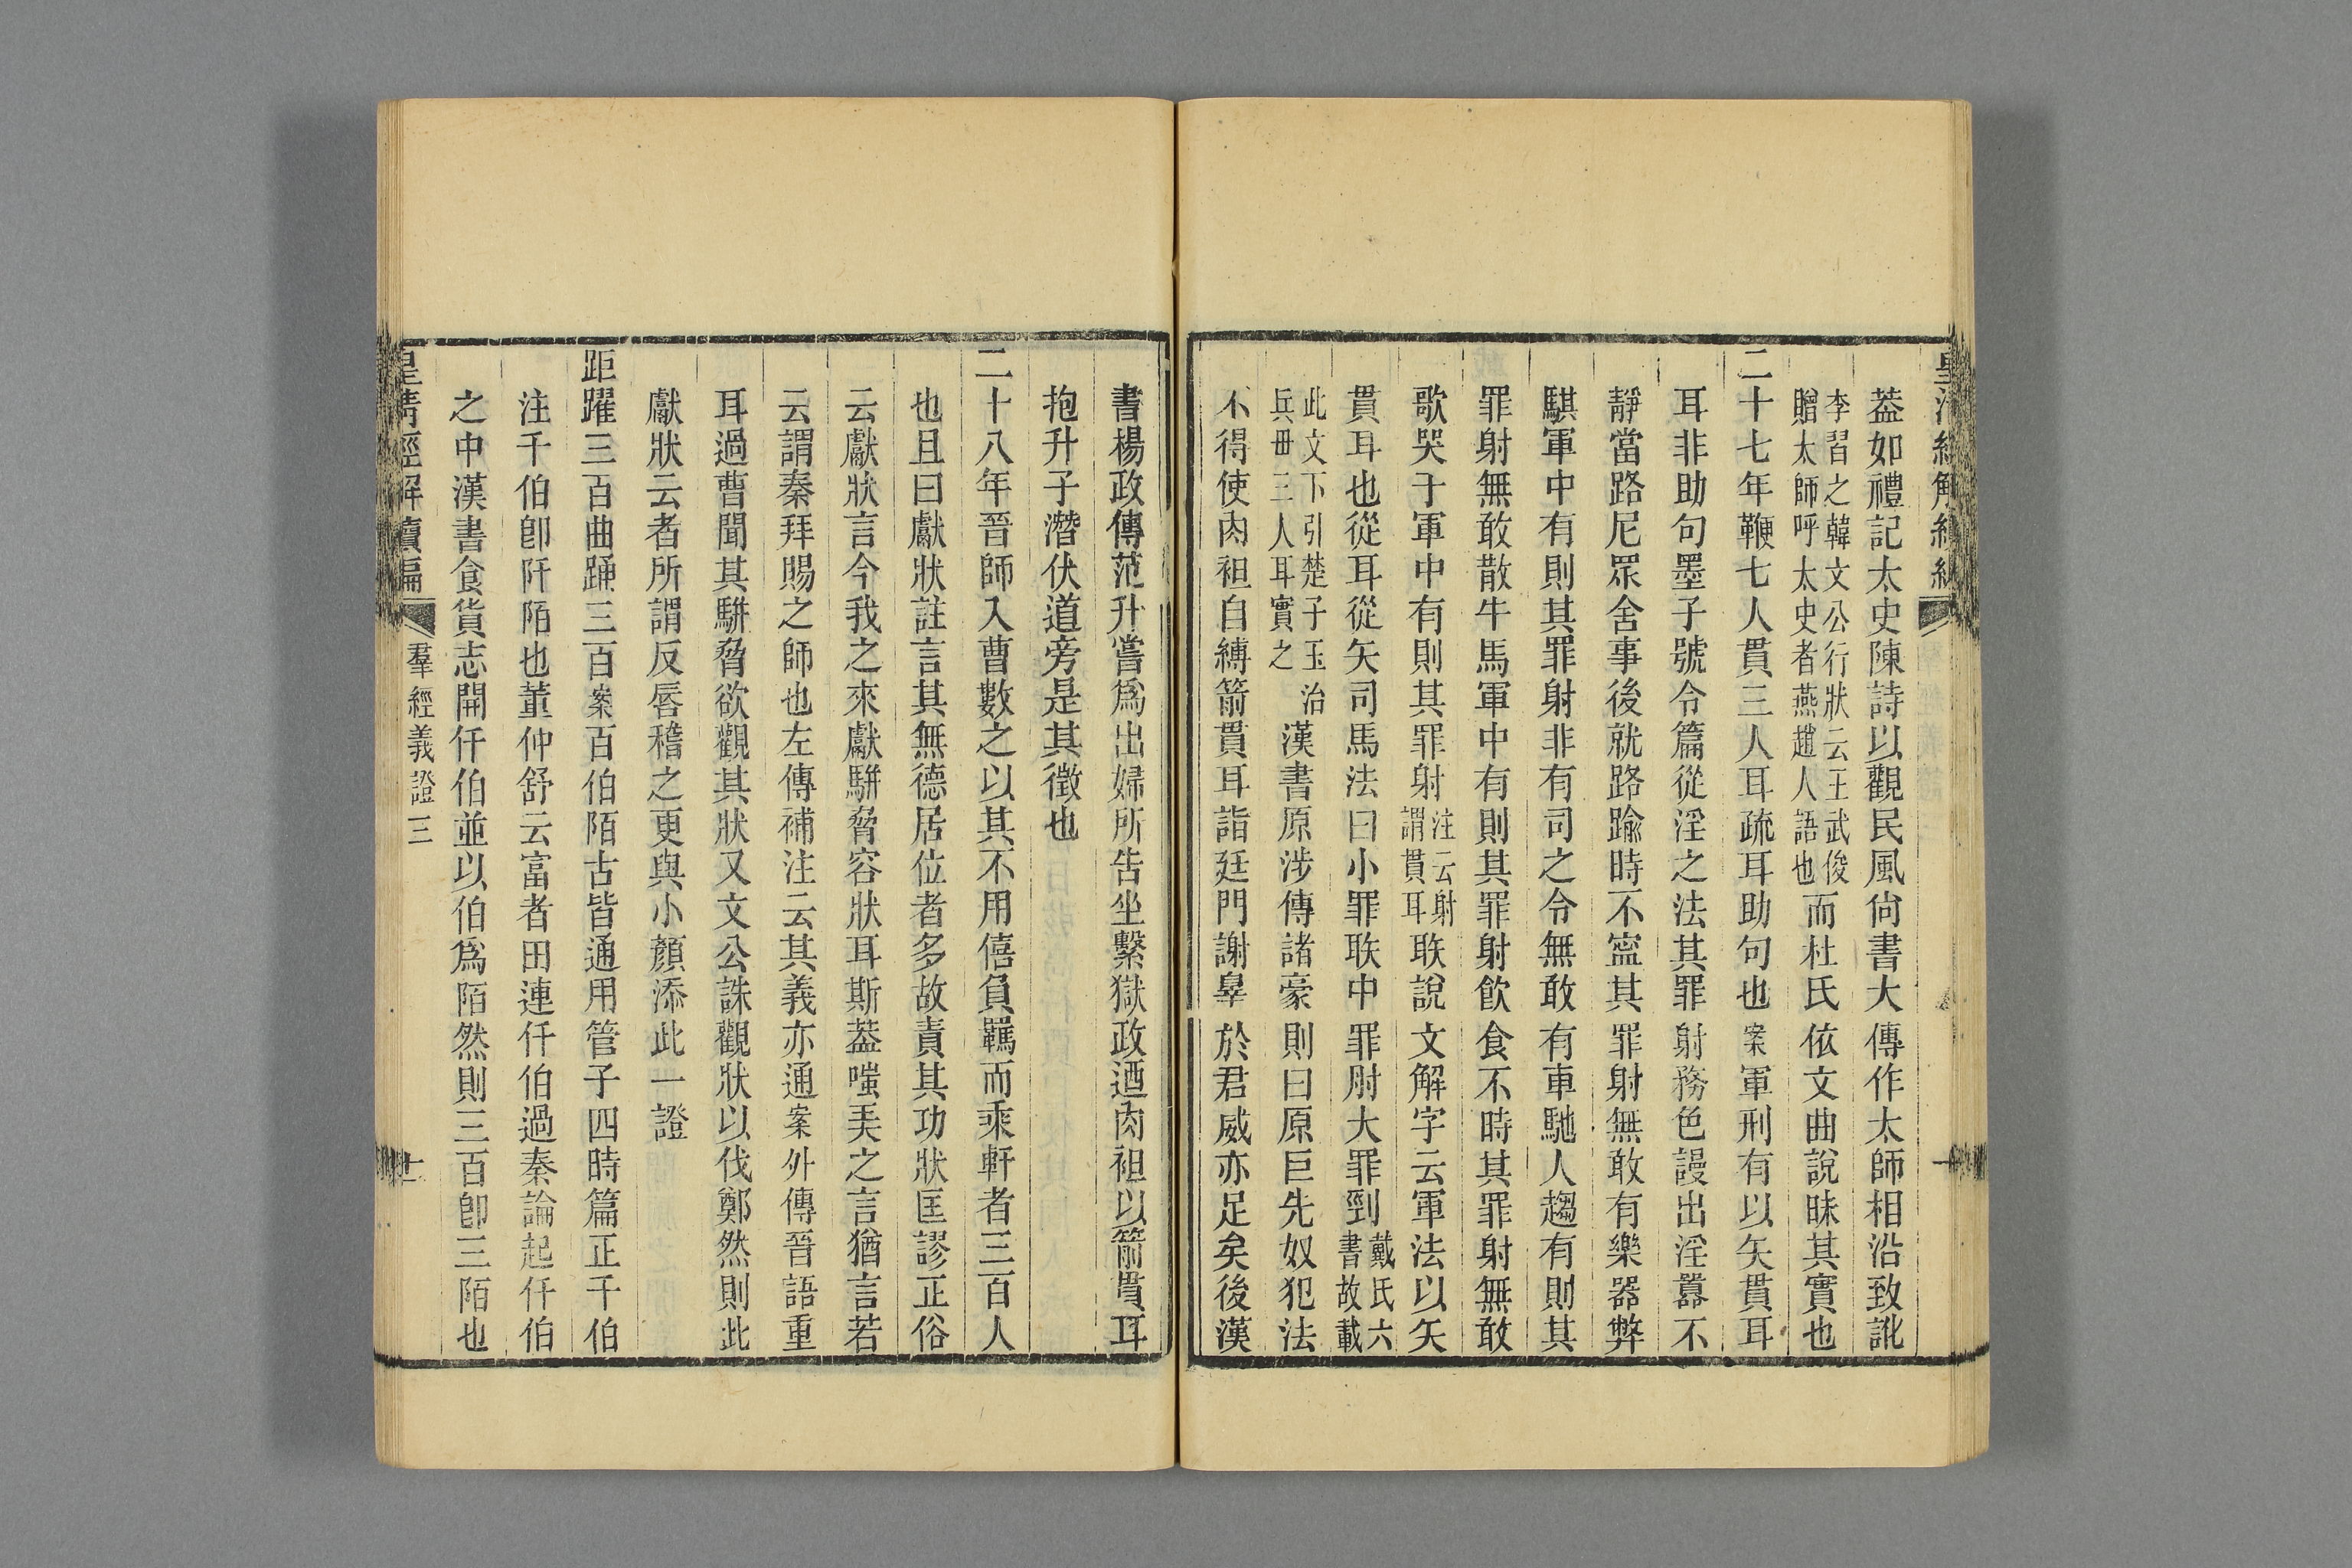 葢如禮記太史陳詩以觀民風尙書大傳作太師相沿致訛
李習之韓文公行狀云王武俊
贈太師呼太史者燕趙人語也
而杜氏依文曲說昧其實也
二十七年鞭七人貫三人耳疏耳助句也案軍刑有以矢貫耳
耳非助句墨子號令篇從淫之法其罪射務色謾出淫囂不
靜當路尼眾舍事後就路踰時不寍其罪射無敢有樂器弊
騏軍中有則其罪射非有司之令無敢有車馳人趨有則其
罪射無敢散牛馬軍中有則其罪射飮食不時其罪射無敢
歌哭于軍中有則其罪射
注云射
謂貫耳
聅說文解字云軍法以矢
貫耳也從耳從矢司馬法曰小罪聅中罪刖大罪剄
戴氏六
書故載
此文下引楚子玉治
兵毌三人耳實之
漢書原涉傳諸豪則曰原巨先奴犯法
不得使肉袒自縛箭貫耳詣廷門謝辠於君威亦足矣後漢
書楊政傳范升嘗爲出婦所告坐繫獄政迺肉袒以箭貫耳
抱升子潛伏道旁是其徵也
二十八年晉師入曹數之以其不用僖負羈而乘軒者三百人
也且曰獻狀註言其無德居位者多故責其功狀匡謬正俗
云獻狀言今我之來獻駢脅容狀耳斯葢嗤羑之言猶言若
云謂秦拜賜之師也左傳補注云其義亦通案外傳晉語重
耳過曹聞其駢脅欲觀其狀又文公誅觀狀以伐鄭然則此
獻狀云者所謂反唇稽之更與小顏添此一證
距躍三百曲踊三百案百伯陌古皆通用管子四時篇正千伯
注千伯卽阡陌也董仲舒云富者田連仟伯過秦論起仟伯
之中漢書食貨志開仟伯並以伯爲陌然則三百卽三陌也
皇清經解續編
羣經義證三
十一